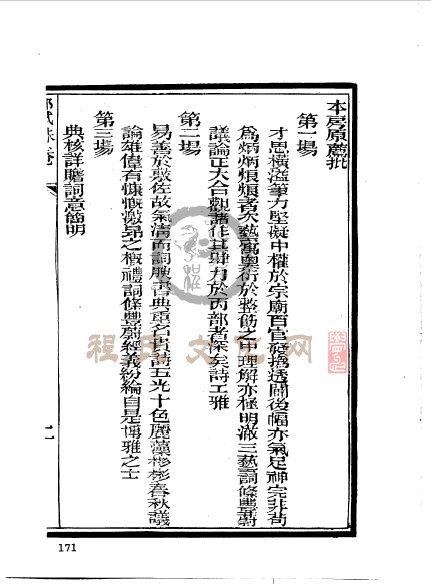 本房原薦批
第一場
才思橫溢筆力堅凝中權於宗廟百官發撝透闢後幅亦氣足神完非苟
為炳炳烺烺者次藝寓奧衍於整飭之中理解亦極明澈三藝詞條豐蔚
議論正大合觀諸作其肆力於丙部者深矣詩工雅
第二場
易善於敷佐故氣清而詞腴書典重名貴詩五光十色麗藻彬彬春秋議
論雄偉有慷慨激昂之概禮詞條豐蔚經義紛綸自是博雅之士
第三場
典核詳贍詞意簡明
程氏文化网
171